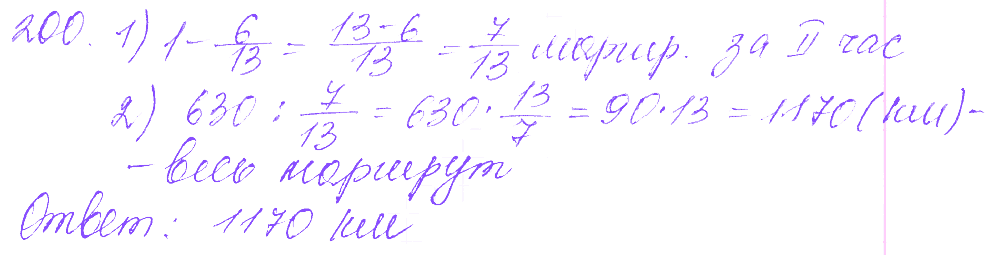 200. 1) 1 - 6/13 = (13-6)/13 = 7/13 маршр. за II час
2) 630 : 7/13 = 630 · 13/7 = 90·13 = 1170 (км) -
- весь маршрут
Ответ: 1170 км